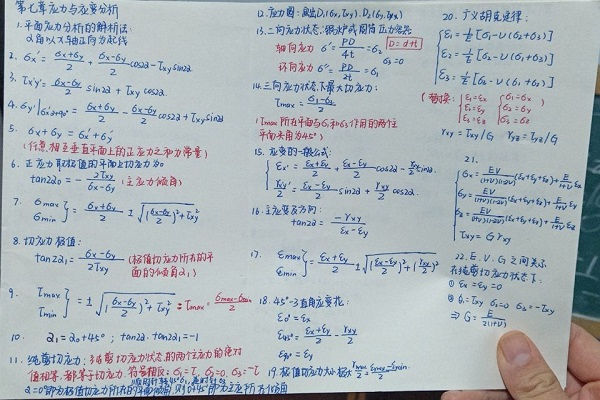 第七章应力与应变分析
1.平面应力分析的解析法:
α角以x轴正向为起线
2. σx' = (σx+σy)/2 + (σx-σy)/2 cos2α - τxy sin2α
3. τx'y' = (σx-σy)/2 sin2α + τxy cos2α.
4. σy'|α'=α+90° = (σx+σy)/2 - (σx-σy)/2 cos2α + τxy sin2α
5. σx+σy = σx'+σy'
(任意相互垂直平面上的正应力之和为常量)
6. 正应力取极值的平面上切应力为0
tan2α0 = - 2τxy/(σx-σy) (主应力倾角)
7. σmax σmin } = (σx+σy)/2 ± √(((σx-σy)/2)²+τxy²)
8. 切应力极值:
tan2α1 = (σx-σy)/2τxy (极值切应力所在的平面的倾角α1)
9. τmax τmin } = ± √(((σx-σy)/2)²+τxy²) : τmax = (σmax-σmin)/2
10. α1 = α0+45° ; tan2α·tan2α1=-1
11. 纯剪切应力: 纯剪切应力状态的两个主应力的绝对
值相等,都等于切应力,符号相反: σ1=τ, σ2=0, σ3=-τ
α=0°即为极值切应力所在的平面倾角,则α0+45°即为主应力倾角
12. 应力圆: 画出D1(σx,τxy), D2(σy,τyx)
13. 三向应力状态: 锅炉或圆筒压力容器
轴向应力 σ' = PD/4t = σ2 D=d+t
环向应力 σ'' = PD/2t = σ1 σ3=0
14. 三向应力状态下最大切应力:
τmax = (σ1-σ3)/2
(τmax所在平面与σ1和σ3作用的两个
平面夹角为45°)
15. 应变的一般公式:
εx' = (εx+εy)/2 + (εx-εy)/2 cos2α - γxy/2 sin2α.
γx'y'/2 = (εx-εy)/2 sin2α + γxy/2 cos2α.
16. 主应变及方向:
tan2α = -γxy/(εx-εy)
17. εmax εmin } = (εx+εy)/2 ± √(((εx-εy)/2)²+(γxy/2)²)
18. 45°-3直角应变花:
ε0° = εx
ε45° = (εx+εy)/2 - γxy/2
ε90° = εy
19. 极值切应力大小 γmax/2 = (εmax-εmin)/2
20. 广义胡克定律:
ε1 = 1/E [σ1-υ(σ2+σ3)]
ε2 = 1/E [σ2-υ(σ1+σ3)]
ε3 = 1/E [σ3-υ(σ1+σ2)]
(替换: ε1=εx σ1=σx
ε2=εy σ2=σy
ε3=εz σ3=σz )
γxy = τxy/G γyz = τyz/G
21.
σx = Eυ/((1+υ)(1-2υ)) (εx+εy+εz) + E/(1+υ) εx
σy = Eυ/((1+υ)(1-2υ)) (εx+εy+εz) + E/(1+υ) εy
σz = Eυ/((1+υ)(1-2υ)) (εx+εy+εz) + E/(1+υ) εz
τxy = Gγxy
22. E. υ. G 之间关系
在纯剪切应力状态下:
① εx=εy=0
② σ1=τxy σ2=0 σ3=-τxy
⇒ G = E/2(1+υ)